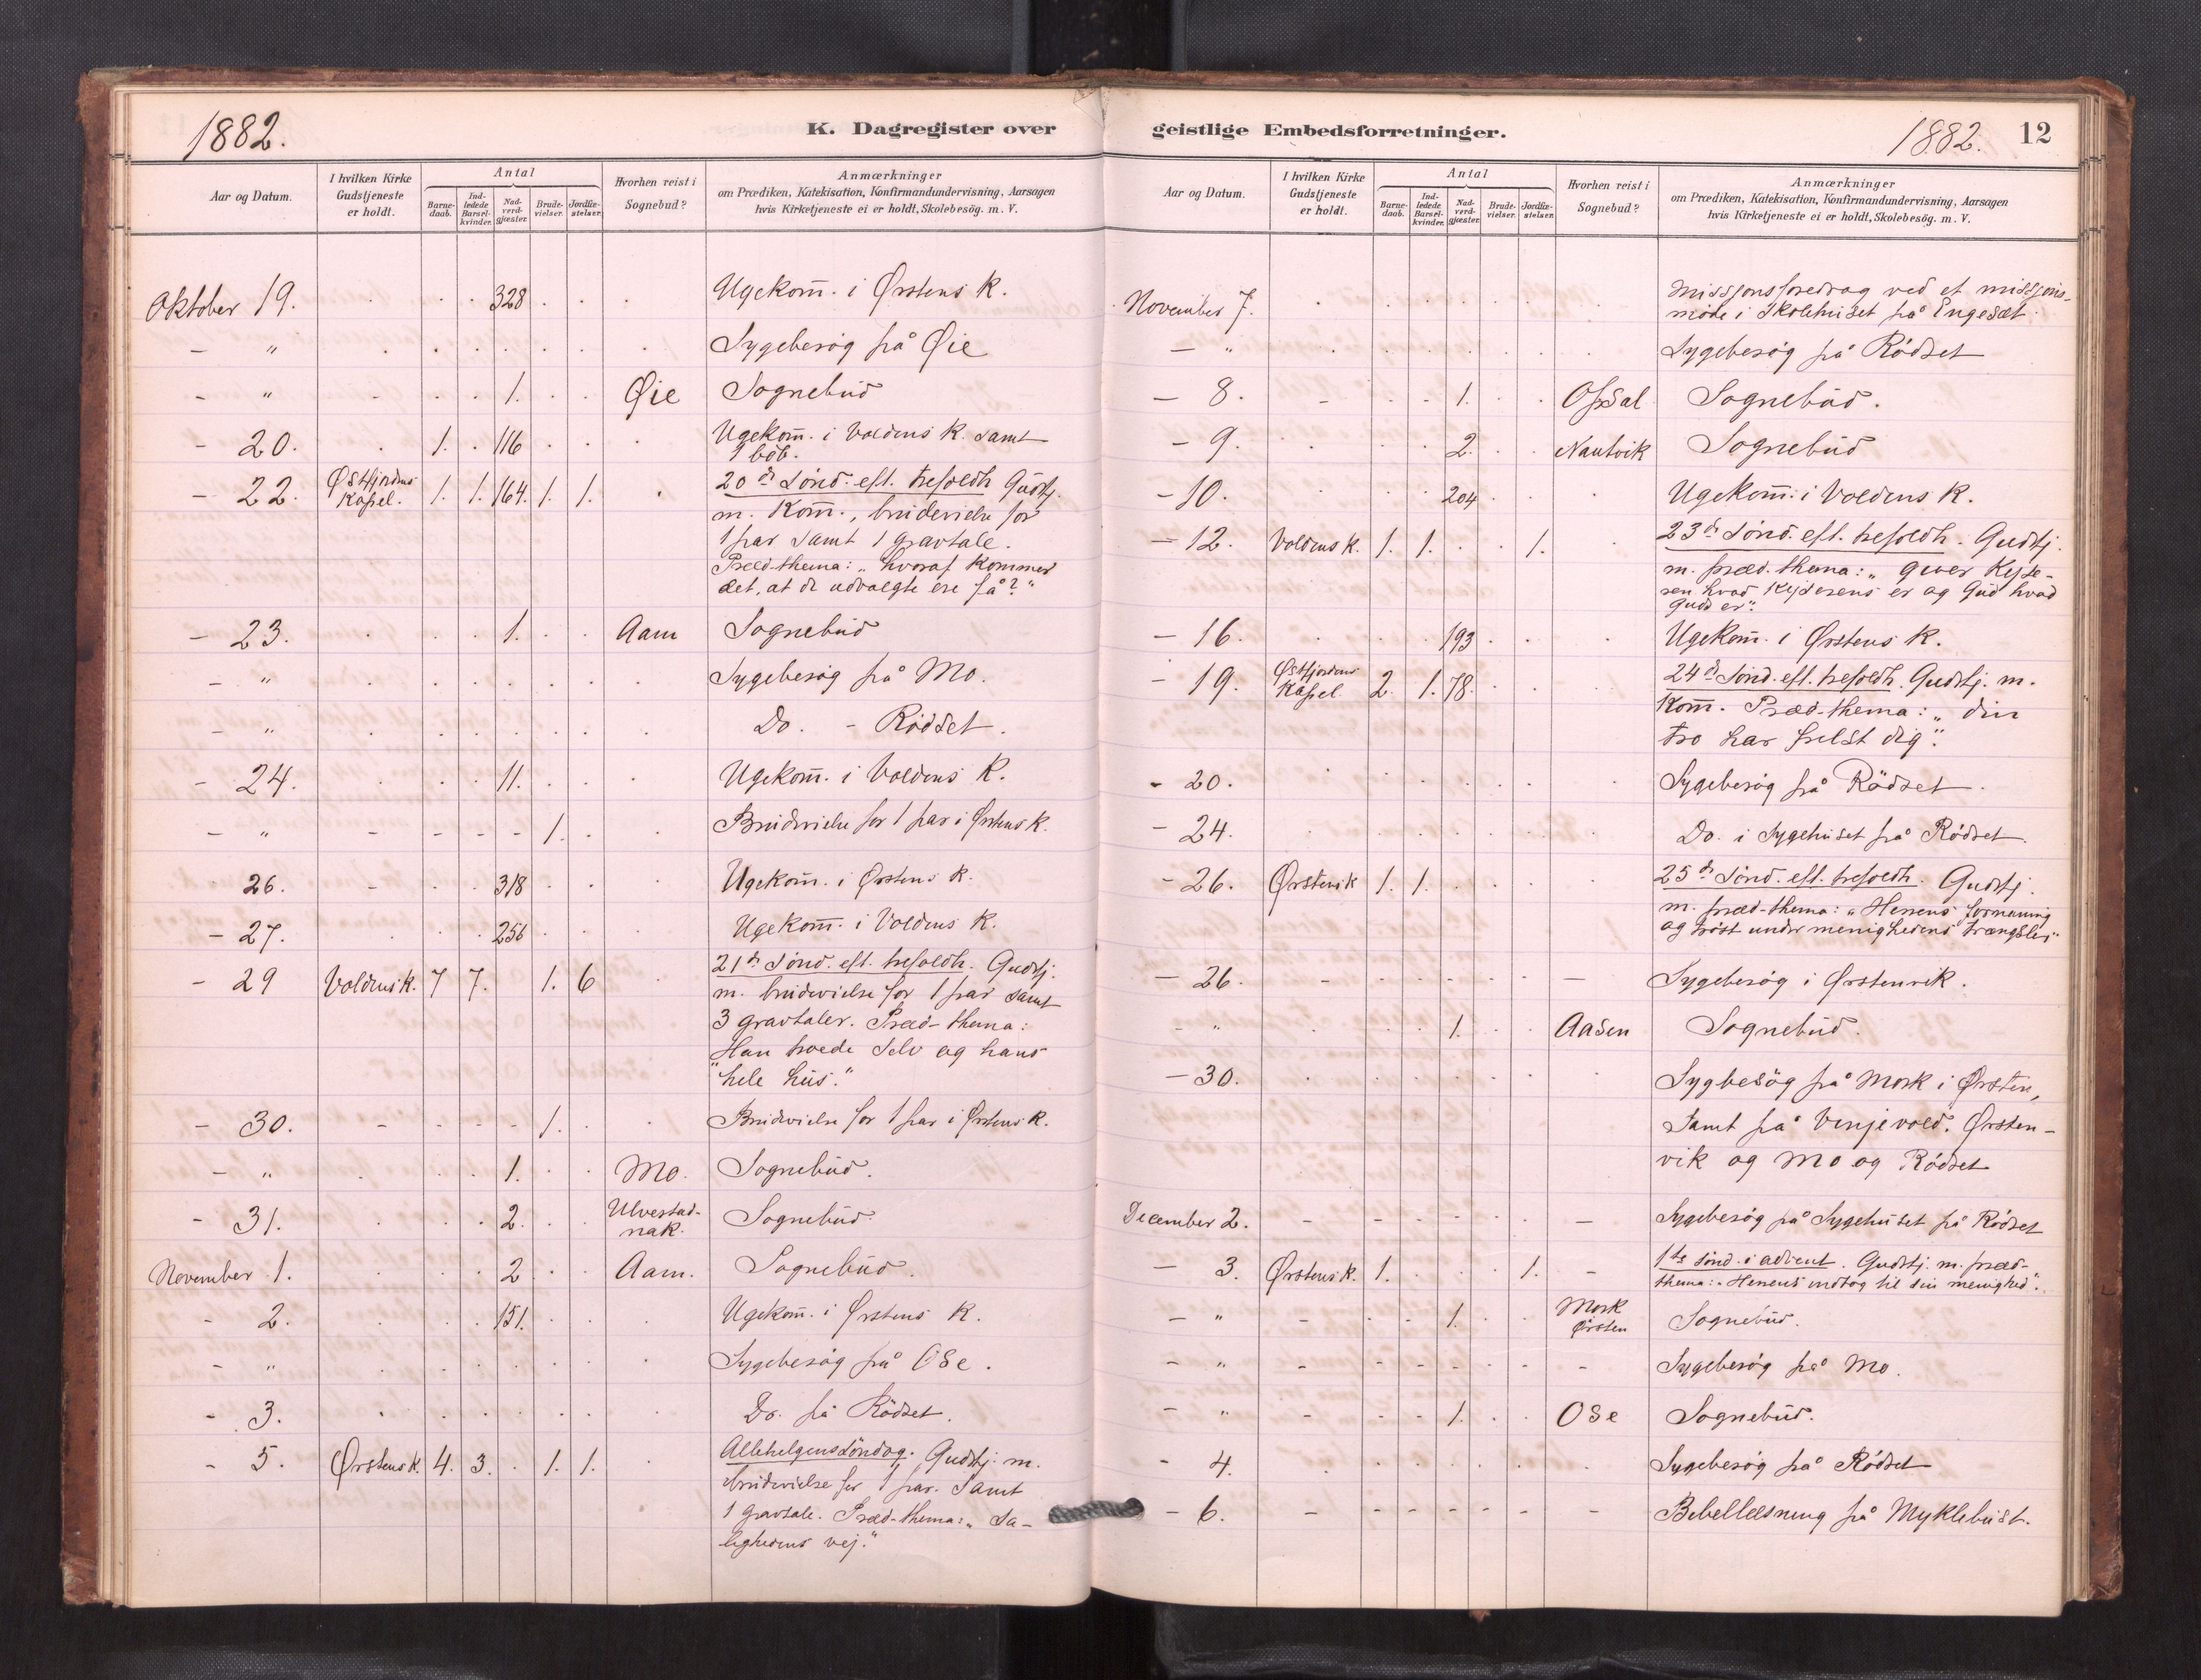 1882.
K. Dagregister over
Aar og Datum.
I hvilken Kirke
Gudstjeneste
er holdt.
Antal
Barne-
daab.
Ind-
ledede
Barsel-
kvinder.
Nad-
verd-
gjæster.
Brude-
vielser.
Jordfæ-
stelser.
Hvorhen reist i
Sognebud?
Anmærkninger
om Prædiken, Katekisation, Konfirmandundervisning, Aarsagen
hvis Kirketjeneste ei er holdt, Skolebesög. m. V.
Oktober 19. 328 Ugekom̄. i Ørstens K.
– " Sygebesøg på Øie
– " 1. Øie Sognebud
– 20. 1. 116 Ugekom̄. i Voldens K. samt
1 bdb.
– 22. Østfjordens
Kapel. 1. 1. 164. 1. 1. 20de Sönd. eft. trefoldh. Gudstj.
m. Kom̄., brudevielse for
1 par samt 1 gravtale.
Præd-thema: „hvoraf kommer
det, at de udvalgte ere få?"
– 23. 1. Aam Sognebud
– " Sygebesøg på Mo.
– " Do. – Rödset.
– 24. 11. Ugekom̄. i Voldens K.
– " 1. Brudevielse for 1 par i Ørstens K.
26. 318 Ugekom̄. i Ørstens K.
– 27. 256 Ugekom̄. i Voldens K.
– 29 Voldens K. 7 7. 1. 6 21de Sönd. eft. trefoldh. Gudstj.
m. brudevielse for 1 par samt
3 gravtaler. Præd-thema:
Han troede selv og hans
"hele hus."
– 30. 1. Brudevielse for 1 par i Ørstens K.
– " 1. Mo. Sognebud.
– 31. 2. Ulvestad-
nak. Sognebud
November 1. 2 Aam. Sognebud.
– 2. 151. Ugekom̄. i Ørstens K.
– " Sygebesøg på Ose.
– 3. Do. på Rödset.
– 5. Ørstens K. 4. 3. 1. 1. Allehelgensdöndag. Gudstj. m.
brudevielse for 1 par. samt
1 gravtale. Præd-thema: „Sa-
lighedens vej."
geistlige Embedsforretninger.
1882. 12
Aar og Datum.
I hvilken Kirke
Gudstjeneste
er holdt.
Antal
Barne-
daab.
Ind-
ledede
Barsel-
kvinder.
Nad-
verd-
gjæster.
Brude-
vielser.
Jordfæ-
stelser.
Hvorhen reist i
Sognebud?
Anmærkninger
om Prædiken, Katekisation, Konfirmandundervisning, Aarsagen
hvis Kirketjeneste ei er holdt, Skolebesög. m. V.
November 7. Missjonsforedrag ved et missjons-
möde i Skolehuset på Engeset.
– " Sygebesøg på Rödset
– 8. 1. Opsal Sognebud.
– 9. 2. Nautvik Sognebud
– 10. 204 Ugekom̄. i Voldens K.
– 12. Voldens K. 1. 1. 1. 23de Sönd. eft. trefoldh. Gudstj.
m. præd. thema: „giver Kejse-
ren hvad Kejserens er og Gud hvad
Guds er".
– 16. 193 Ugekom̄. i Ørstens K.
– 19. Østfjordens
Kapel 2. 1. 78. 24de Sönd. eft. trefoldh. Gudstj. m.
Kom̄. Præd-thema: „din
tro har frelst dig".
– 20. Sygebesøg på Rödset.
– 24. Do. i Sygehuset på Rödset.
– 26. Ørstens K 1. 1. 25de Sönd. eft. trefoldh. Gudstj.
m. præd-thema: „Herrens formaning
og tröst under menighedens trængsler"
– 26. Sygebesøg i Ørstenvik.
– " 1. Aasen Sognebud.
– 30. Sygbesög på Mork i Ørsten,
samt på Vinjevold. Ørsten-
vik og Mo og Rödset
December 2. Sygebesøg på Sygehuset på Rödset
– 3. Ørstens K. 1. 1. 1ste sönd. i advent. Gudstj. m. præd-
thema: „Herrens indtog til sin menighed".
– " 1. Mork
Ørsten Sognebud.
– " Sygebesøg på Mo.
– " 1. Ose Sognebud.
– 4. Sygebesøg på Rödset
– 6. Bibellæsning på Myklebust.